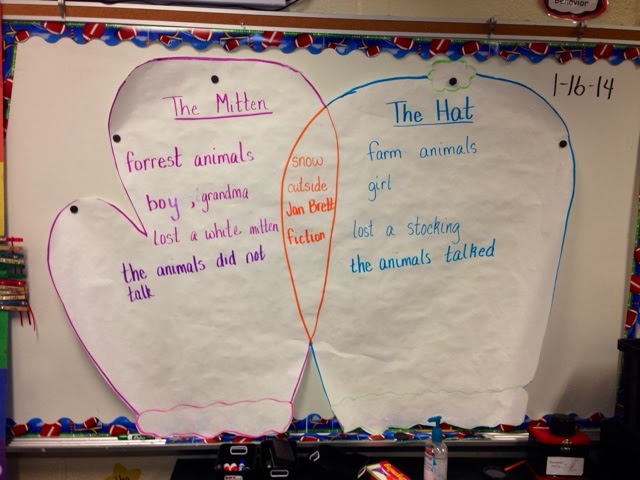 Behavior
1-16-14
The Mitten
forrest animals
boy, grandma
lost a white mitten
the animals did not
talk
snow
outside
Jan Brett
fiction
The Hat
farm animals
girl
lost a stocking
the animals talked